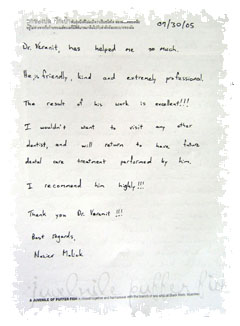 09/30/05
Dr. Veranit, has helped me so much.
He is friendly, kind and extremely professional.
The result of his work is excellent!!!
I wouldn't want to visit any other
dentist, and will return to have future
dental care treatment performed by him.
I recommend him highly!!!
Thank you Dr. Veranit !!!
Best regards,
A JUVENILE OF PUFFER FISH